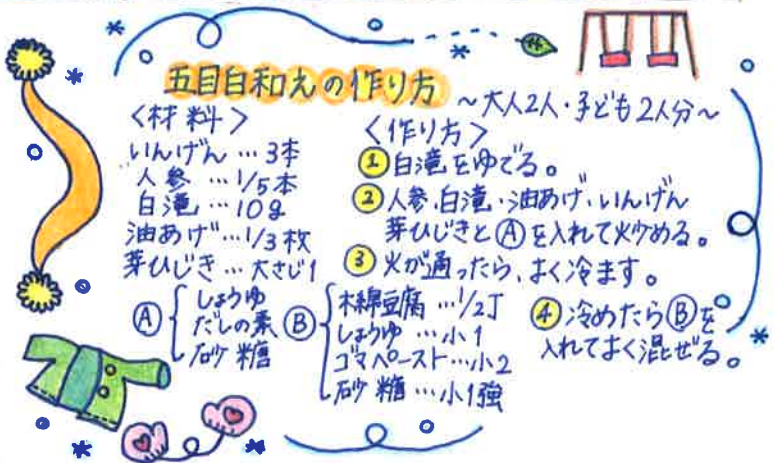 五目白和えの作り方
～大人2人・子ども2人分～
<材料>
いんげん…3本
人参…1/5本
白滝…10g
油あげ…1/3枚
芽ひじき…大さじ1
Ⓐ
しょうゆ
だしの素
砂糖
Ⓑ
木綿豆腐…1/2丁
しょうゆ…小1
ゴマペースト…小2
砂糖…小1強
<作り方>
①白滝をゆでる。
②人参・白滝・油あげ・いんげん
芽ひじきとⒶを入れて炒める。
③火が通ったら、よく冷ます。
④冷めたらⒷを
入れてよく混ぜる。